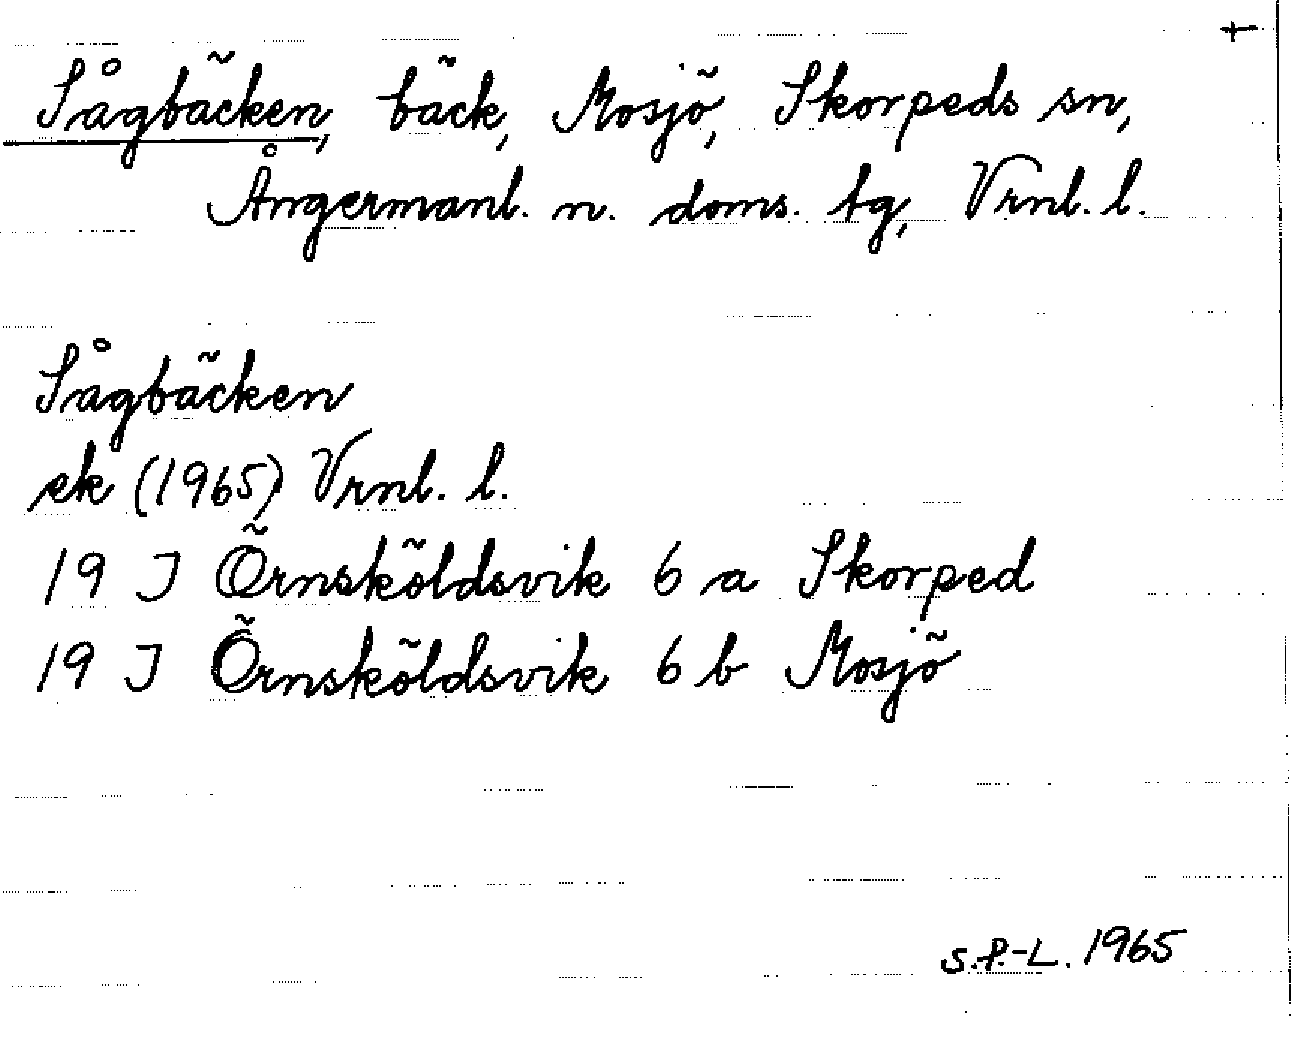 +
Sågbäcken, bäck, Mosjö, Skorpeds sn,
Ångermanl. n. doms. tg, Vrnl. l.
Sågbäcken
ek (1965) Vrnl. l.
19 J Örnsköldsvik 6 a Skorped
19 J Örnsköldsvik 6 b Mosjö
S.P.-L. 1965